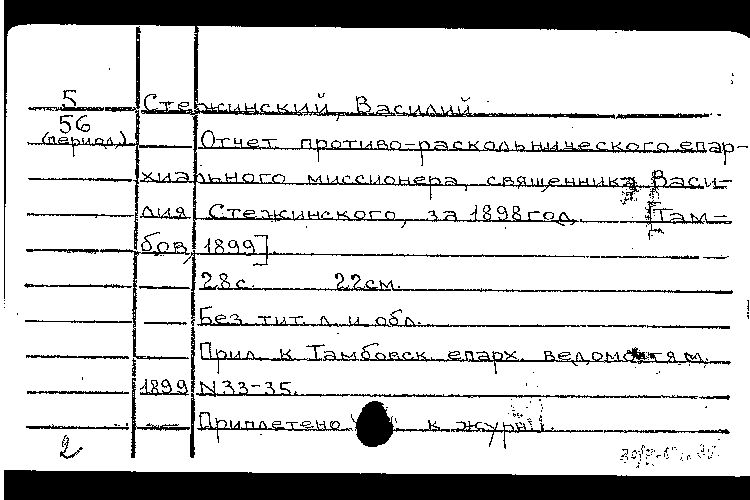 5 Стежинский, Василий
56
(период.) Отчет противо-раскольнического епар-
хиального миссионера, священника Васи-
лия Стежинского, за 1898 год. [Там-
бов, 1899].
28с. 22см.
Без тит. л. и обл.
Прил. к Тамбовск. епарх. ведомостям.
1899 N 33-35.
Приплетено к журн.
2